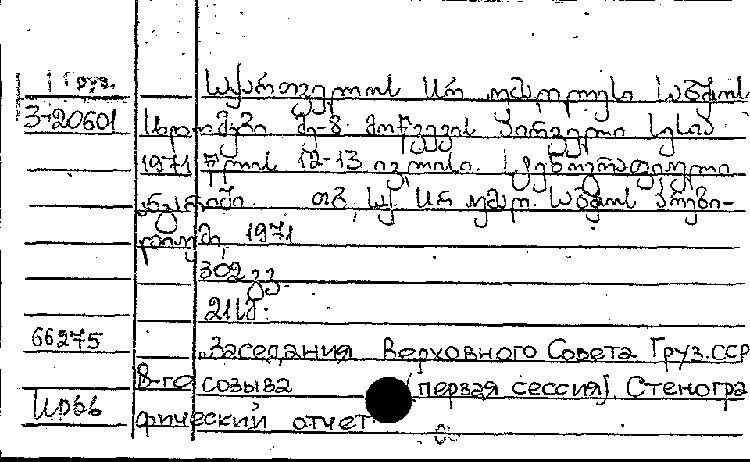 Груз.
საქართველოს სსრ უმაღლესი საბჭოს
3-20601
სხდომები მე-8 მოწვევის პირველი სესია
1971 წლის 12-13 ივლისი. სტენოგრაფიული
ანგარიში. თბ., საქ. სსრ უმაღ. საბჭოს პრეზი-
დიუმი, 1971
302 გვ.
66275
Заседания Верховного Совета Груз.ССР
8-го созыва (первая сессия). Стеногра
фический отчет